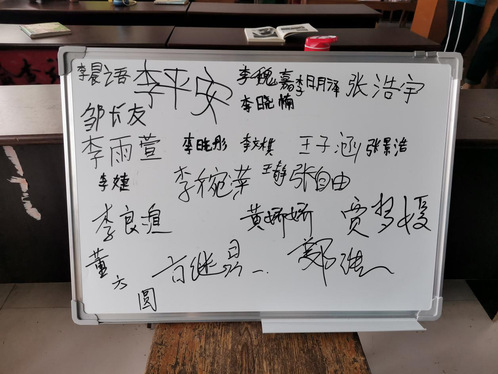 李晨语 李平安 李槐嘉 李明泽 张浩宇
李晓楠
邹长友
李雨萱 李晓彤 李文棋 王子涵 张景浩
李婕 李婉萍 王静 张自由
李良渲 黄娇娇 贾梦媛
董方圆
郑浩